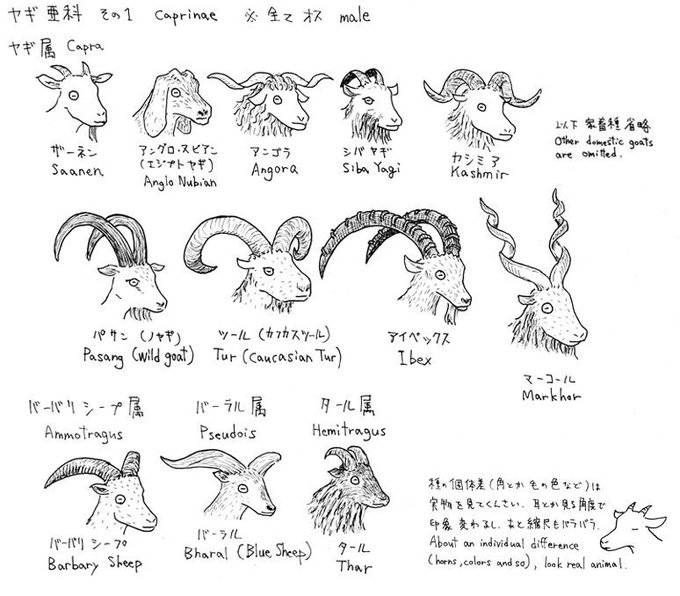 ヤギ亜科 その1 Caprinae ※全てオス male
ヤギ属 Capra
ザーネン
Saanen
アングロ・スビアン
(エジプトヤギ)
Anglo Nubian
アンゴラ
Angora
シバヤギ
Siba Yagi
カシミア
Kashmir
以下 家畜種 省略
Other domestic goats
are omitted.
パサン (ノヤギ)
Pasang (wild goat)
ツール (カフカスツール)
Tur (Caucasian Tur)
アイベックス
Ibex
マーコール
Markhor
バーバリシープ属
Ammotragus
バーラル属
Pseudois
タール属
Hemitragus
バーバリシープ
Barbary Sheep
バーラル
Bharal (Blue Sheep)
タール
Thar
種の個体差(角とか毛の色など)は
実物を見てくんさい. 耳とか見る角度で
印象変わるし. あと縮尺もバラバラ.
About an individual difference
(horns, colors and so), look real animal.